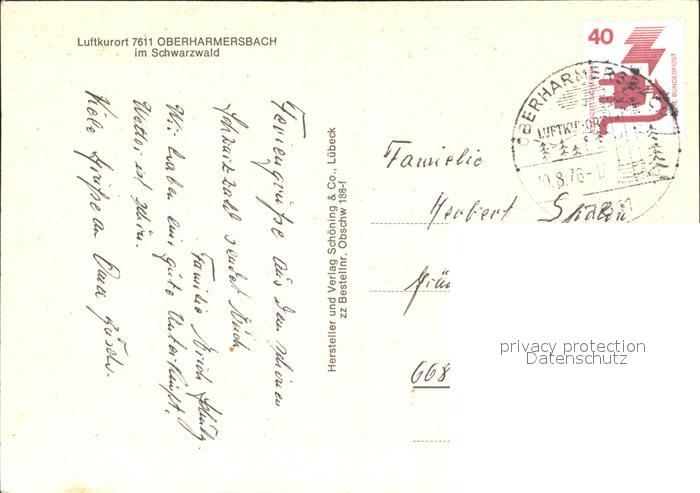 Luftkurort 7611 OBERHARMERSBACH
im Schwarzwald
Feriengrüße aus dem schönen
Schwarzwald sendet Euch
Familie Erich
Wir haben eine gute Unterkunft,
Wetter ist schön.
Viele Grüße an Oma
Hersteller und Verlag Schöning & Co., Lübeck
zz Bestellnr. Obschw 188-f
40
DEUTSCHE BUNDESPOST
OBERHARMERSBACH
LUFTKURORT
10.8.76-17
7611
Familie
Herbert
668
privacy protection
Datenschutz